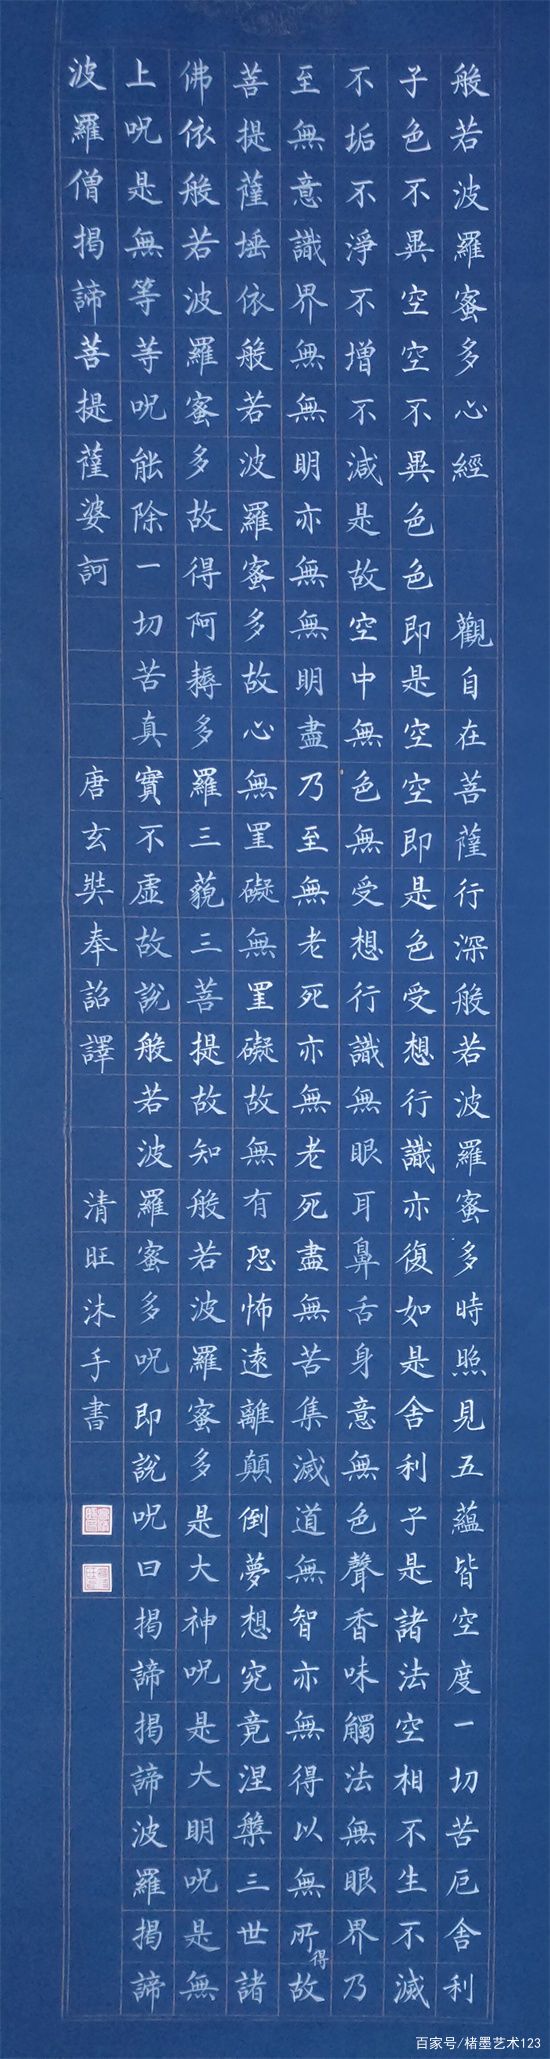 般若波羅蜜多心經 觀自在菩薩行深般若波羅蜜多時照見五蘊皆空度一切苦厄舍利
子色不異空空不異色色即是空空即是色受想行識亦復如是舍利子是諸法空相不生不滅
不垢不淨不增不減是故空中無色無受想行識無眼耳鼻舌身意無色聲香味觸法無眼界乃
至無意識界無無明亦無無明盡乃至無老死亦無老死盡無苦集滅道無智亦無得以無所得故
菩提薩埵依般若波羅蜜多故心無罣礙無罣礙故無有恐怖遠離顛倒夢想究竟涅槃三世諸
佛依般若波羅蜜多故得阿耨多羅三藐三菩提故知般若波羅蜜多是大神呪是大明呪是無
上呪是無等等呪能除一切苦真實不虛故說般若波羅蜜多呪即說呪曰揭諦揭諦波羅揭諦
波羅僧揭諦菩提薩婆訶 唐玄奘奉詔譯 清旺沐手書
百家号/楮墨艺术123